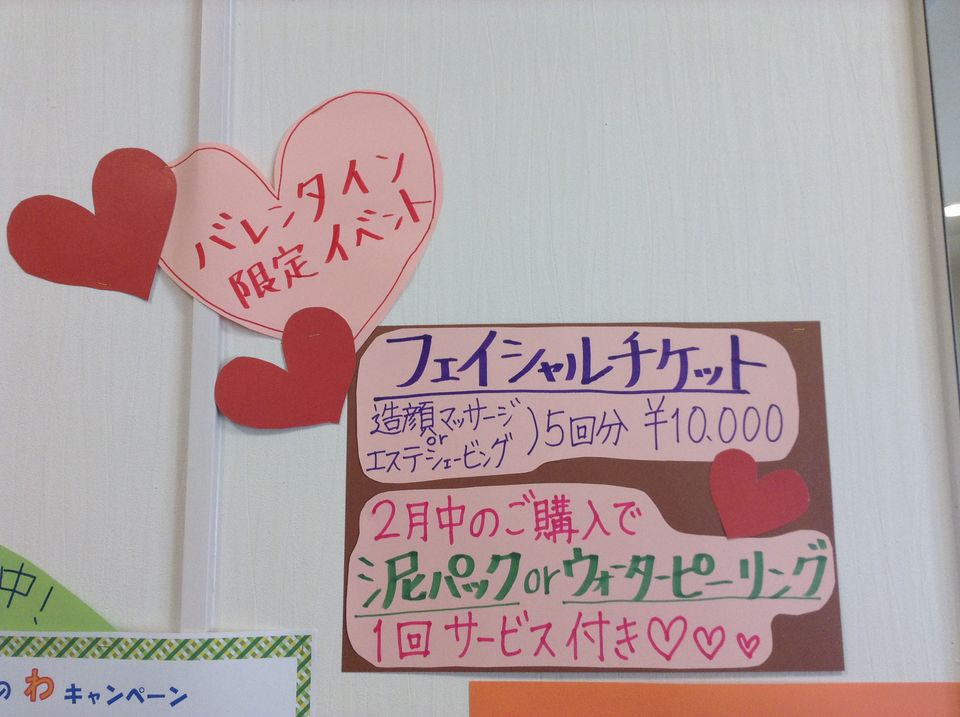 バレンタイン
限定イベント
フェイシャルチケット
造顔マッサージ
or
エステシェービング
)5回分 ¥10.000
2月中のご購入で
泥パックorウォーターピーリング
1回サービス付き♡♡♡
中!
の わ キャンペーン